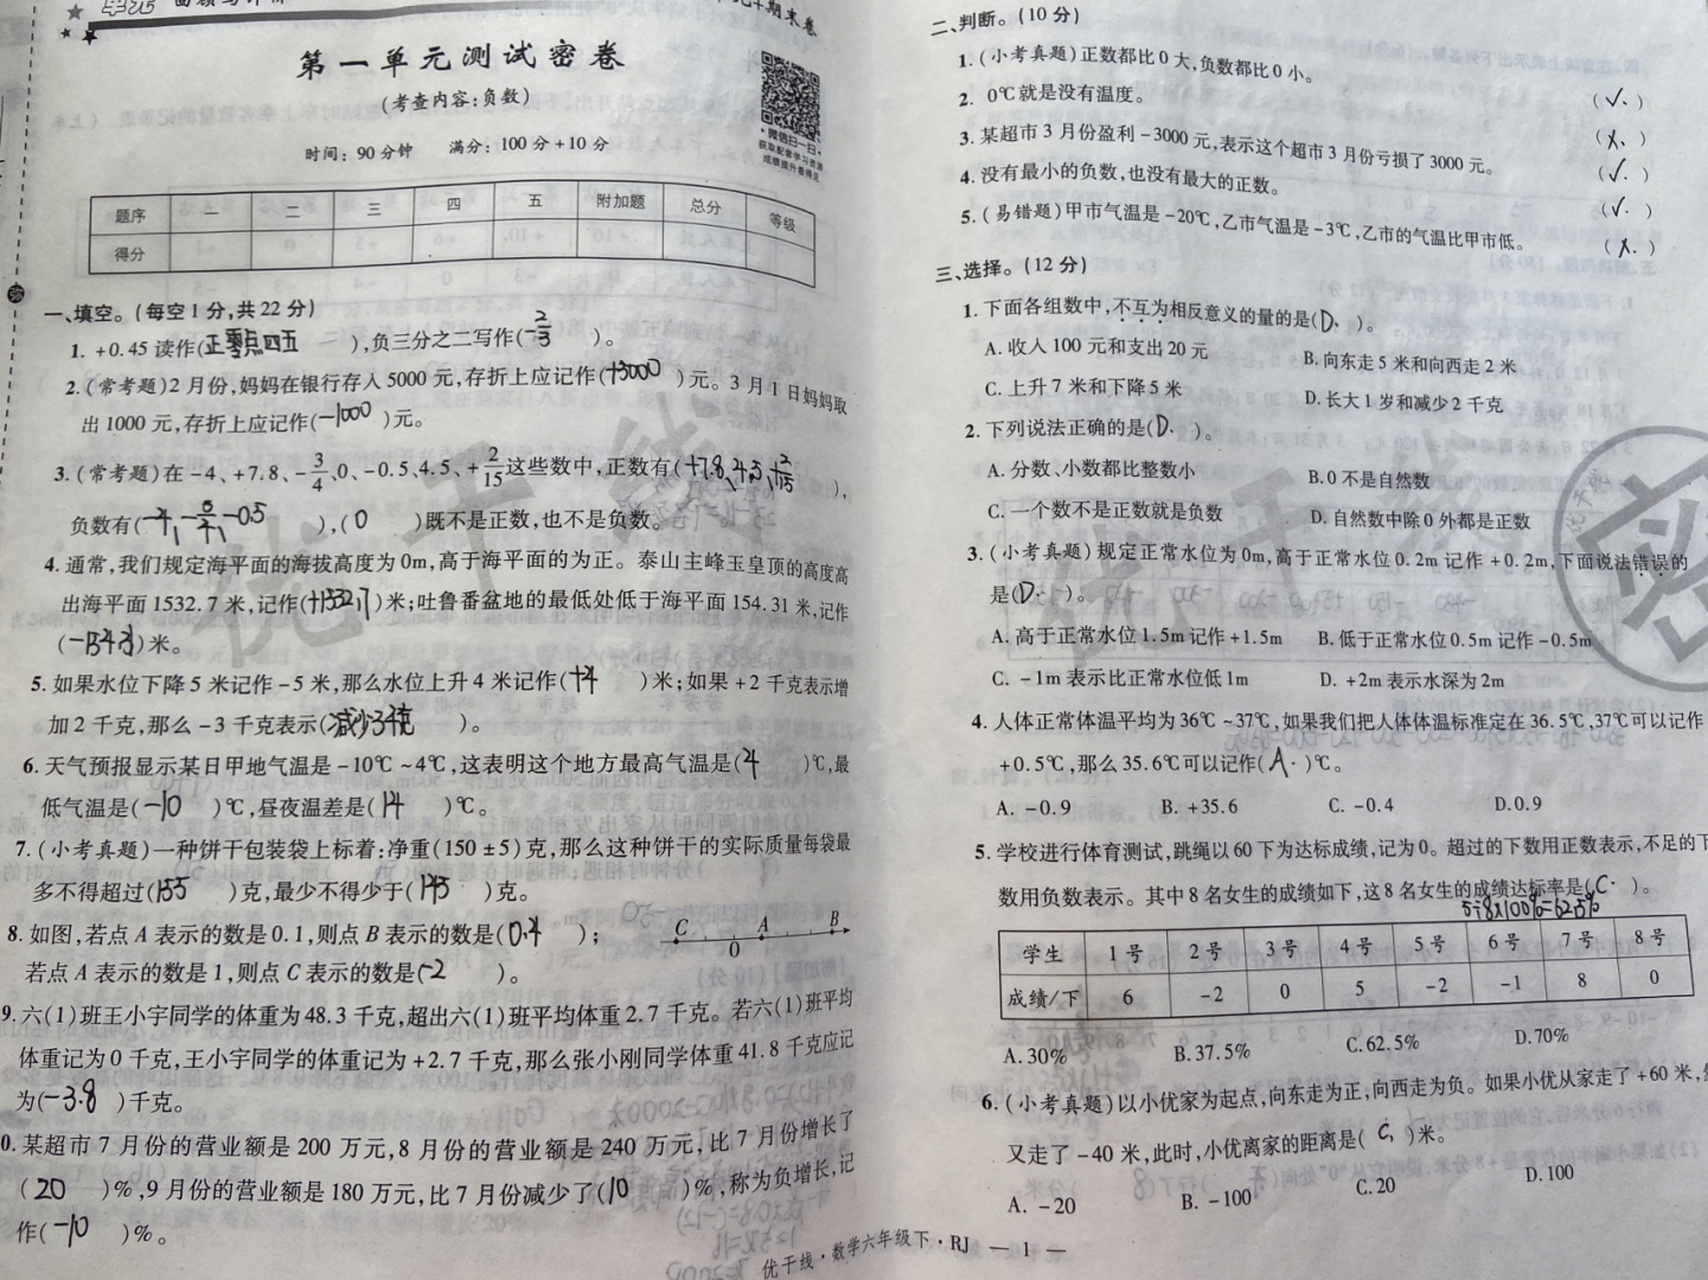 单元
期末卷
第一单元测试密卷
(考查内容:负数)
时间：90分钟 满分：100分+10分
微信扫一扫
获取配套学习资源
成绩提升看得见
题序 一 二 三 四 五 附加题 总分 等级
得分
一、填空。(每空1分,共22分)
1. +0.45 读作(正零点四五),负三分之二写作(-2/3)。
2.(常考题)2月份,妈妈在银行存入5000元,存折上应记作(+5000)元。3月1日妈妈取
出1000元,存折上应记作(-1000)元。
3.(常考题)在-4、+7.8、-3/4、0、-0.5、4.5、+2/15这些数中,正数有(+7.8、4.5、+2/15),
负数有(-4, -3/4, -0.5),(0)既不是正数,也不是负数。
4. 通常,我们规定海平面的海拔高度为0m,高于海平面的为正。泰山主峰玉皇顶的高度高
出海平面1532.7米,记作(+1532.7)米;吐鲁番盆地的最低处低于海平面154.31米,记作
(-154.31)米。
5. 如果水位下降5米记作-5米,那么水位上升4米记作(+4)米;如果+2千克表示增
加2千克,那么-3千克表示(减少3千克)。
6. 天气预报显示某日甲地气温是-10℃~4℃,这表明这个地方最高气温是(4)℃,最
低气温是(-10)℃,昼夜温差是(14)℃。
7.(小考真题)一种饼干包装袋上标着:净重(150±5)克,那么这种饼干的实际质量每袋最
多不得超过(155)克,最少不得少于(145)克。
8. 如图,若点A表示的数是0.1,则点B表示的数是(0.4);
C 0 A B
若点A表示的数是1,则点C表示的数是(-2)。
9. 六(1)班王小宇同学的体重为48.3千克,超出六(1)班平均体重2.7千克。若六(1)班平均
体重记为0千克,王小宇同学的体重记为+2.7千克,那么张小刚同学体重41.8千克应记
为(-3.8)千克。
0. 某超市7月份的营业额是200万元,8月份的营业额是240万元,比7月份增长了
(20)%,9月份的营业额是180万元,比7月份减少了(10)%,称为负增长,记
作(-10)%。
二、判断。(10分)
1.(小考真题)正数都比0大,负数都比0小。 (√.)
2. 0℃就是没有温度。 (×.)
3. 某超市3月份盈利-3000元,表示这个超市3月份亏损了3000元。 (√.)
4. 没有最小的负数,也没有最大的正数。 (√.)
5.(易错题)甲市气温是-20℃,乙市气温是-3℃,乙市的气温比甲市低。 (×.)
三、选择。(12分)
1. 下面各组数中,不互为相反意义的量的是(D.)。
A. 收入100元和支出20元 B. 向东走5米和向西走2米
C. 上升7米和下降5米 D. 长大1岁和减少2千克
2. 下列说法正确的是(D.)。
A. 分数、小数都比整数小 B. 0不是自然数
C. 一个数不是正数就是负数 D. 自然数中除0外都是正数
3.(小考真题)规定正常水位为0m,高于正常水位0.2m记作+0.2m,下面说法错误的
是(D.)。
A. 高于正常水位1.5m记作+1.5m B. 低于正常水位0.5m记作-0.5m
C. -1m表示比正常水位低1m D. +2m表示水深为2m
4. 人体正常体温平均为36℃~37℃,如果我们把人体体温标准定在36.5℃,37℃可以记作
+0.5℃,那么35.6℃可以记作(A.)℃。
A. -0.9 B. +35.6 C. -0.4 D.0.9
5. 学校进行体育测试,跳绳以60下为达标成绩,记为0。超过的下数用正数表示,不足的下
数用负数表示。其中8名女生的成绩如下,这8名女生的成绩达标率是(C.)。
5÷8×100%=62.5%
学生 1号 2号 3号 4号 5号 6号 7号 8号
成绩/下 6 -2 0 5 -2 -1 8 0
A.30% B.37.5% C.62.5% D.70%
6.(小考真题)以小优家为起点,向东走为正,向西走为负。如果小优从家走了+60米,
又走了-40米,此时,小优离家的距离是(C,)米。
A. -20 B. -100 C.20 D.100
优干线·数学六年级下·RJ — 1 —
优干线
优干
密